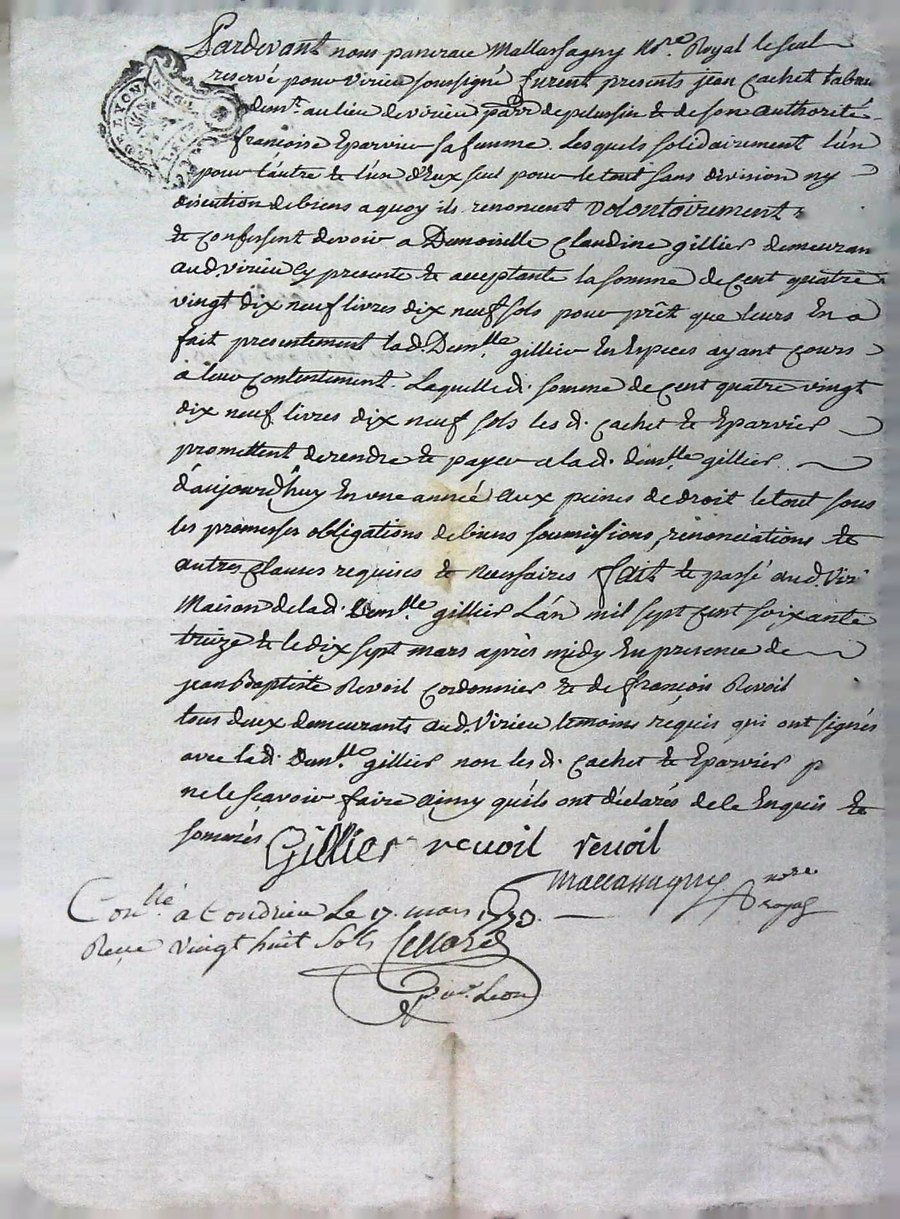 Pardevant nous pancrace Mallassagny No.re Royal le seul
reservé pour Virieu soussigné furent presents jean Cachet
dem.t au lieu de virieu parr. de pelussin & de son authorité
françoise Eparvier sa femme. Lesquels solidairement l'un
pour l'autre & l'un d'Eux seul pour le tout sans division ny
discution de biens a quoy ils renoncent volontairement
& confessent devoir a Demoiselle Claudine gillier demeuran
aud. Virieu cy presente & acceptante la somme de cent quatre
vingt dix neuf livres dix neuf sols pour prêt que leurs En a
fait presentement lad. Dem.lle gillier En Espices ayant cours
a leur contentement. Laquelle d. somme de cent quatre vingt
dix neuf livres dix neuf sols les d. Cachet & Eparvier
promettent de rendre & payer a la d. dem.lle gillier
d'aujourd'huy En une année aux peines de droit le tout sous
les promesses obligations de biens soumissions, renonciations &
autres clauses requises & necessaires fait & passé aud. Viri
Maison de la d. Dem.lle gillier L'an mil sept cent soixante
treize & le dix sept mars après midy En presence de
jean Baptiste Revoil Cordonnier & de françois Revoil
tous deux demeurants aud. Virieu temoins requis qui ont signés
avec la d. Dem.lle gillier non les d. Cachet & Eparvier p
ne le sçavoir faire ainsy qu'ils ont déclarés de ce Enquis &
sommés Gillier revoil revoil
Mallassagny no.re
royal
Con.llé a Condrieu Le 17. mars 1773.
Reçu vingt huit sols
LYON